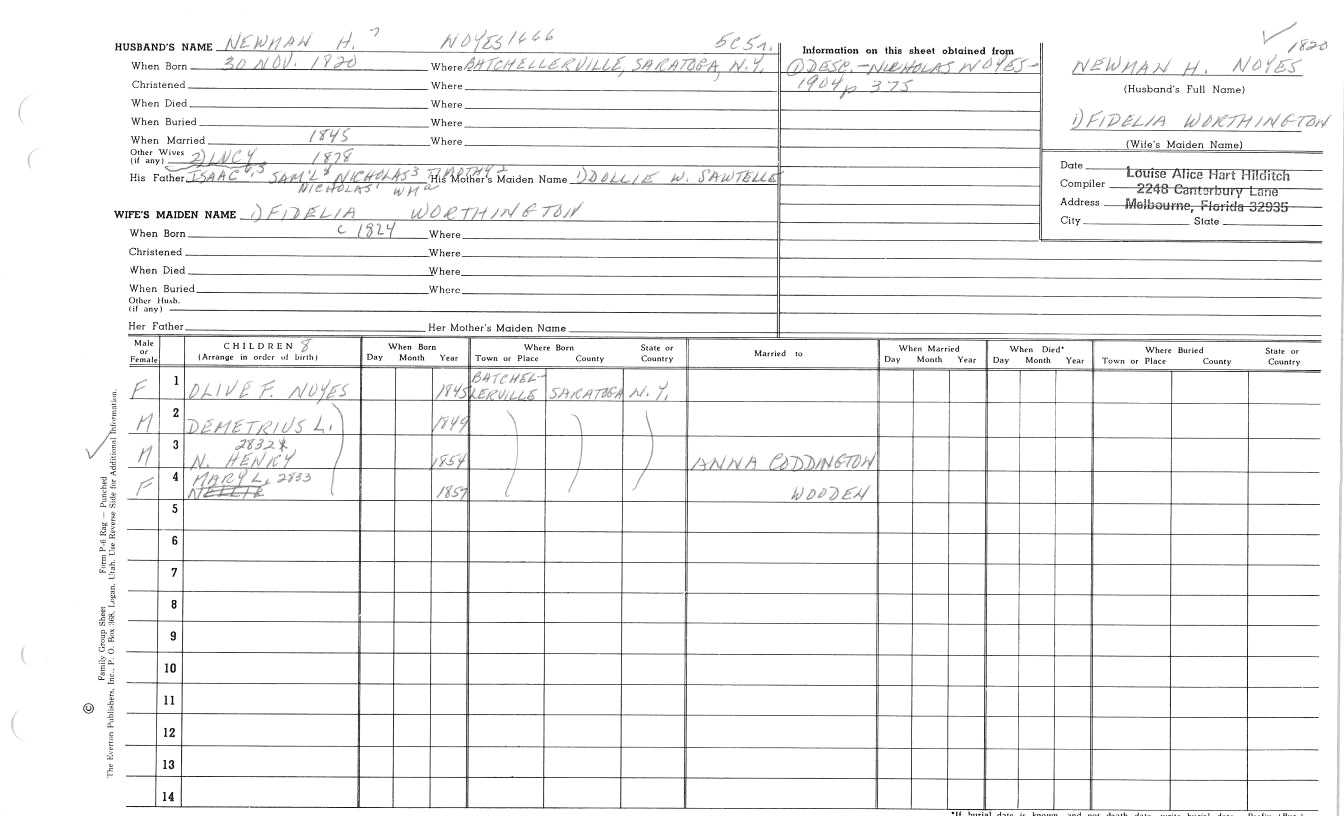 HUSBAND'S NAME NEWMAN H. 7 NOYES 1666 5C5s.
When Born 30 NOV. 1820 Where BATCHELLERVILLE, SARATOGA, N.Y.
Christened Where
When Died Where
When Buried Where
When Married 1845 Where
Other Wives (if any) 2) LUCY 1878
His Father ISAAC 6, 5 SAM'L 4 NICHOLAS 3 TIMOTHY 2 His Mother's Maiden Name 1) DOLLIE W. SAWTELLE
NICHOLAS 1 WM a
Information on this sheet obtained from
① DESC. - NICHOLAS NOYES -
1904 p 375
✓ 1820
NEWMAN H. NOYES
(Husband's Full Name)
1) FIDELIA WORTHINGTON
(Wife's Maiden Name)
Date
Compiler Louise Alice Hart Hilditch
2248 Canterbury Lane
Address Melbourne, Florida 32935
City State
WIFE'S MAIDEN NAME 1) FIDELIA WORTHINGTON
When Born c 1824 Where
Christened Where
When Died Where
When Buried Where
Other Husb. (if any)
Her Father Her Mother's Maiden Name
Male or Female
CHILDREN 8
(Arrange in order of birth)
When Born
Day Month Year
Where Born
Town or Place County State or Country
Married to
When Married
Day Month Year
When Died*
Day Month Year
Where Buried
Town or Place County State or Country
F 1 OLIVE F. NOYES 1845 BATCHEL-
LERVILLE SARATOGA N.Y.
M 2 DEMETRIUS L. 1849
✓ M 3 2832
N. HENRY 1854 ANNA CODDINGTON
F 4 MARY L, 2833
NELLIE 1857 WOODEN
5
6
7
8
9
10
11
12
13
14
© Family Group Sheet Form P-6 Rag — Punched
The Everton Publishers, Inc., P. O. Box 368, Logan, Utah. Use Reverse Side for Additional Information.
*If burial date is known, and not death date, write burial date